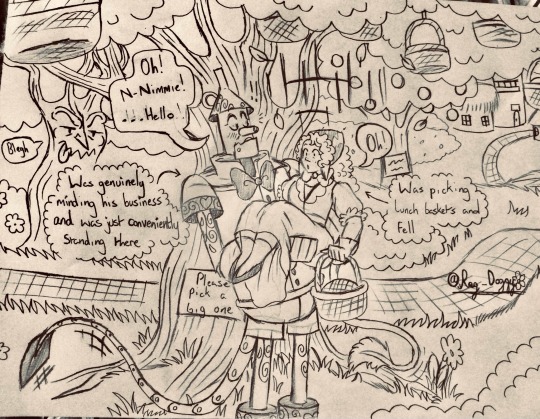 Oh!
N-Nimmie!
...Hello!
Blegh
Oh!
Was genuinely
minding his business
and was just conveniently
standing there
Was picking
lunch baskets and
fell
Please
pick a
big one
@Rag-Doggy